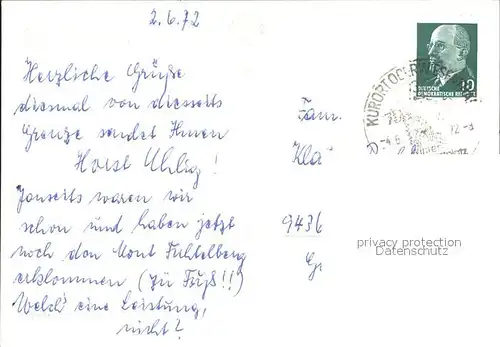 2.6.72
Herzliche Grüße
diesmal von diesseits
Grenze sendet Ihnen
Horst Uhlig!
Jenseits waren wir
schon und haben jetzt
noch den Mont Fichtelberg
erklommen (zu Fuß!!)
Welch' eine Leistung,
nicht?
DEUTSCHE
DEMOKRATISCHE REPUBLIK
10
KURORT OBERWIESENTHAL
-4.6.72-8
Fam.
Kla
9436
privacy protection
Datenschutz